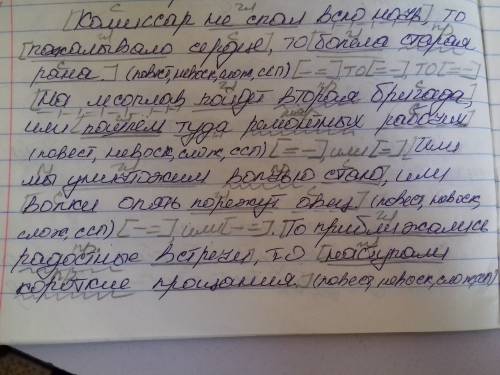 [Комиссар не спал всю ночь], то
[покалывало сердце, то [болела старая
рана.] (повест, невоск, слож, ссп) [–=], то [=–], то [=–]
[На лесоплав пойдёт вторая бригада,
или [пошлём туда ремонтных рабочих]
(повест, невоск, слож, ссп) [=–] или [=] [Или
мы уничтожим волчью стаю, или
волки опять порежут овец] (повест, невоск,
слож, ссп) [–=] или [–=]. [То приближались
радостные встречи, то [наступали
короткие прощания.] (повест, невоск, слож, ссп)